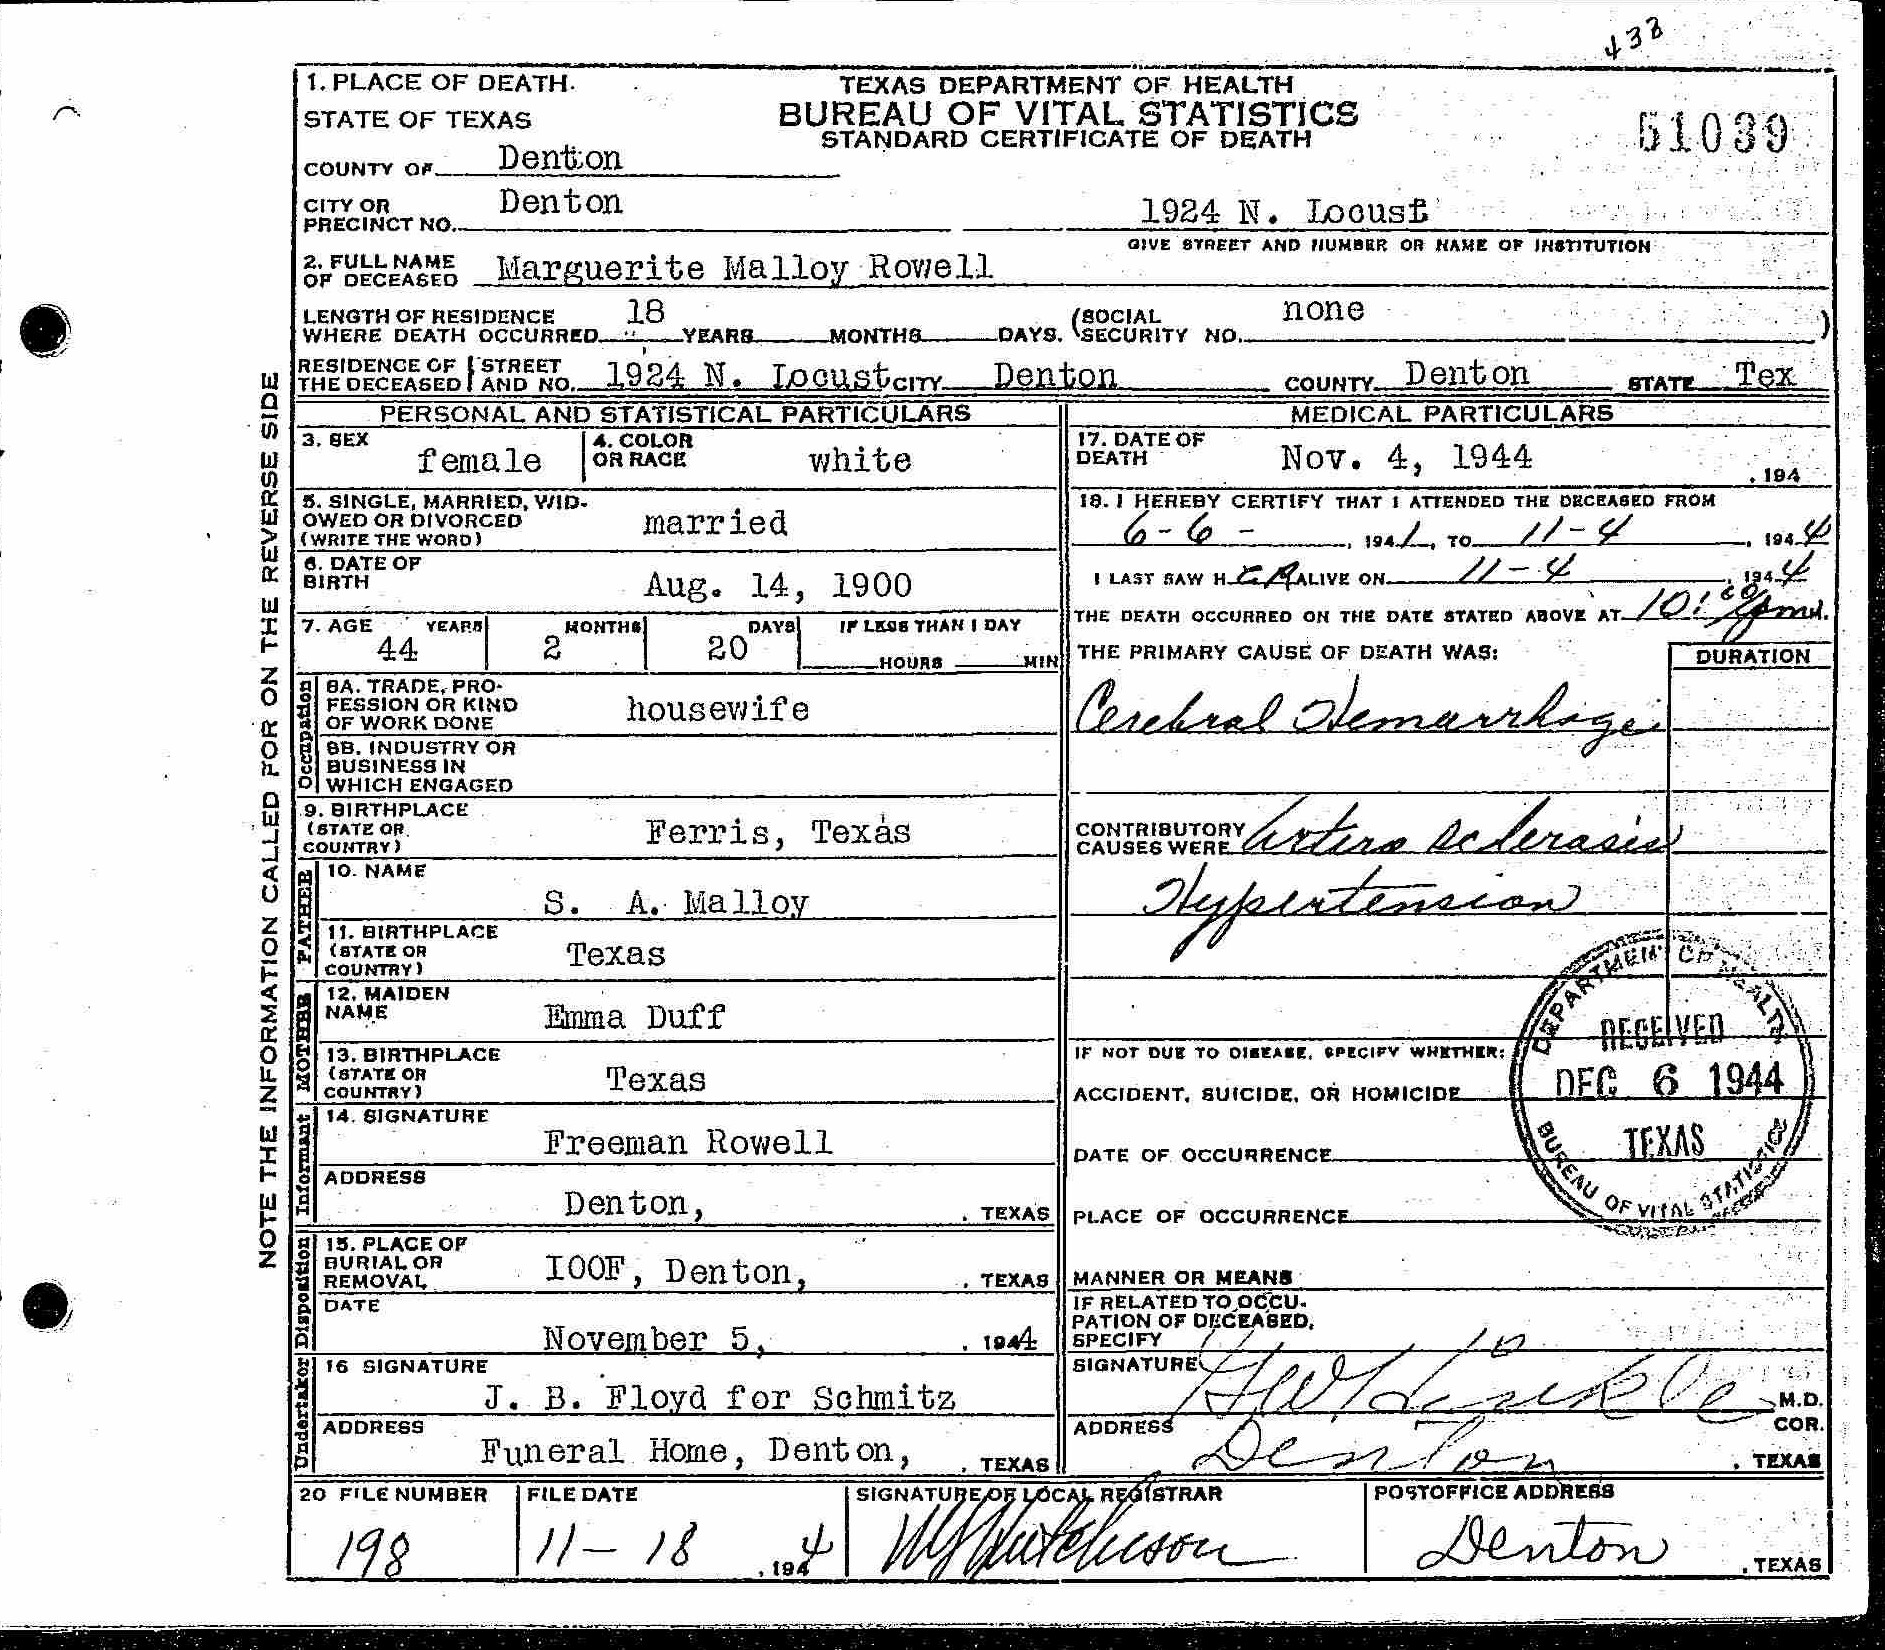 433
1. PLACE OF DEATH.
STATE OF TEXAS
COUNTY OF Denton
CITY OR PRECINCT NO. Denton
TEXAS DEPARTMENT OF HEALTH
BUREAU OF VITAL STATISTICS
STANDARD CERTIFICATE OF DEATH
51039
1924 N. Locust
GIVE STREET AND NUMBER OR NAME OF INSTITUTION
2. FULL NAME OF DECEASED Marguerite Malloy Rowell
LENGTH OF RESIDENCE WHERE DEATH OCCURRED 18 YEARS MONTHS DAYS. (SOCIAL SECURITY NO. none )
RESIDENCE OF THE DECEASED STREET AND NO. 1924 N. Locust CITY Denton COUNTY Denton STATE Tex
PERSONAL AND STATISTICAL PARTICULARS
3. SEX female 4. COLOR OR RACE white
5. SINGLE, MARRIED, WIDOWED OR DIVORCED (WRITE THE WORD) married
6. DATE OF BIRTH Aug. 14, 1900
7. AGE YEARS 44 MONTHS 2 DAYS 20 IF LESS THAN 1 DAY HOURS MIN
Occupation
8A. TRADE, PROFESSION OR KIND OF WORK DONE housewife
8B. INDUSTRY OR BUSINESS IN WHICH ENGAGED
9. BIRTHPLACE (STATE OR COUNTRY) Ferris, Texas
FATHER
10. NAME S. A. Malloy
11. BIRTHPLACE (STATE OR COUNTRY) Texas
MOTHER
12. MAIDEN NAME Emma Duff
13. BIRTHPLACE (STATE OR COUNTRY) Texas
Informant
14. SIGNATURE Freeman Rowell
ADDRESS Denton, , TEXAS
Disposition
15. PLACE OF BURIAL OR REMOVAL IOOF, Denton, , TEXAS
DATE November 5, , 1944
Undertaker
16 SIGNATURE J. B. Floyd for Schmitz
ADDRESS Funeral Home, Denton, , TEXAS
MEDICAL PARTICULARS
17. DATE OF DEATH Nov. 4, 1944 , 194
18. I HEREBY CERTIFY THAT I ATTENDED THE DECEASED FROM
6-6- , 1941, TO 11-4 , 1944
I LAST SAW HER ALIVE ON 11-4 , 1944
THE DEATH OCCURRED ON THE DATE STATED ABOVE AT 10:00 pm.
THE PRIMARY CAUSE OF DEATH WAS: DURATION
Cerebral Hemarrhage
CONTRIBUTORY CAUSES WERE Artero sclerosis
Hypertension
IF NOT DUE TO DISEASE, SPECIFY WHETHER:
ACCIDENT, SUICIDE, OR HOMICIDE
DATE OF OCCURRENCE
PLACE OF OCCURRENCE
MANNER OR MEANS
IF RELATED TO OCCUPATION OF DECEASED, SPECIFY
SIGNATURE M.D.
COR.
ADDRESS Denton , TEXAS
DEPARTMENT OF HEALTH
RECEIVED
DEC 6 1944
TEXAS
BUREAU OF VITAL STATISTICS
20 FILE NUMBER 198
FILE DATE 11-18 , 1944
SIGNATURE OF LOCAL REGISTRAR Hutcheson
POSTOFFICE ADDRESS Denton , TEXAS
NOTE THE INFORMATION CALLED FOR ON THE REVERSE SIDE